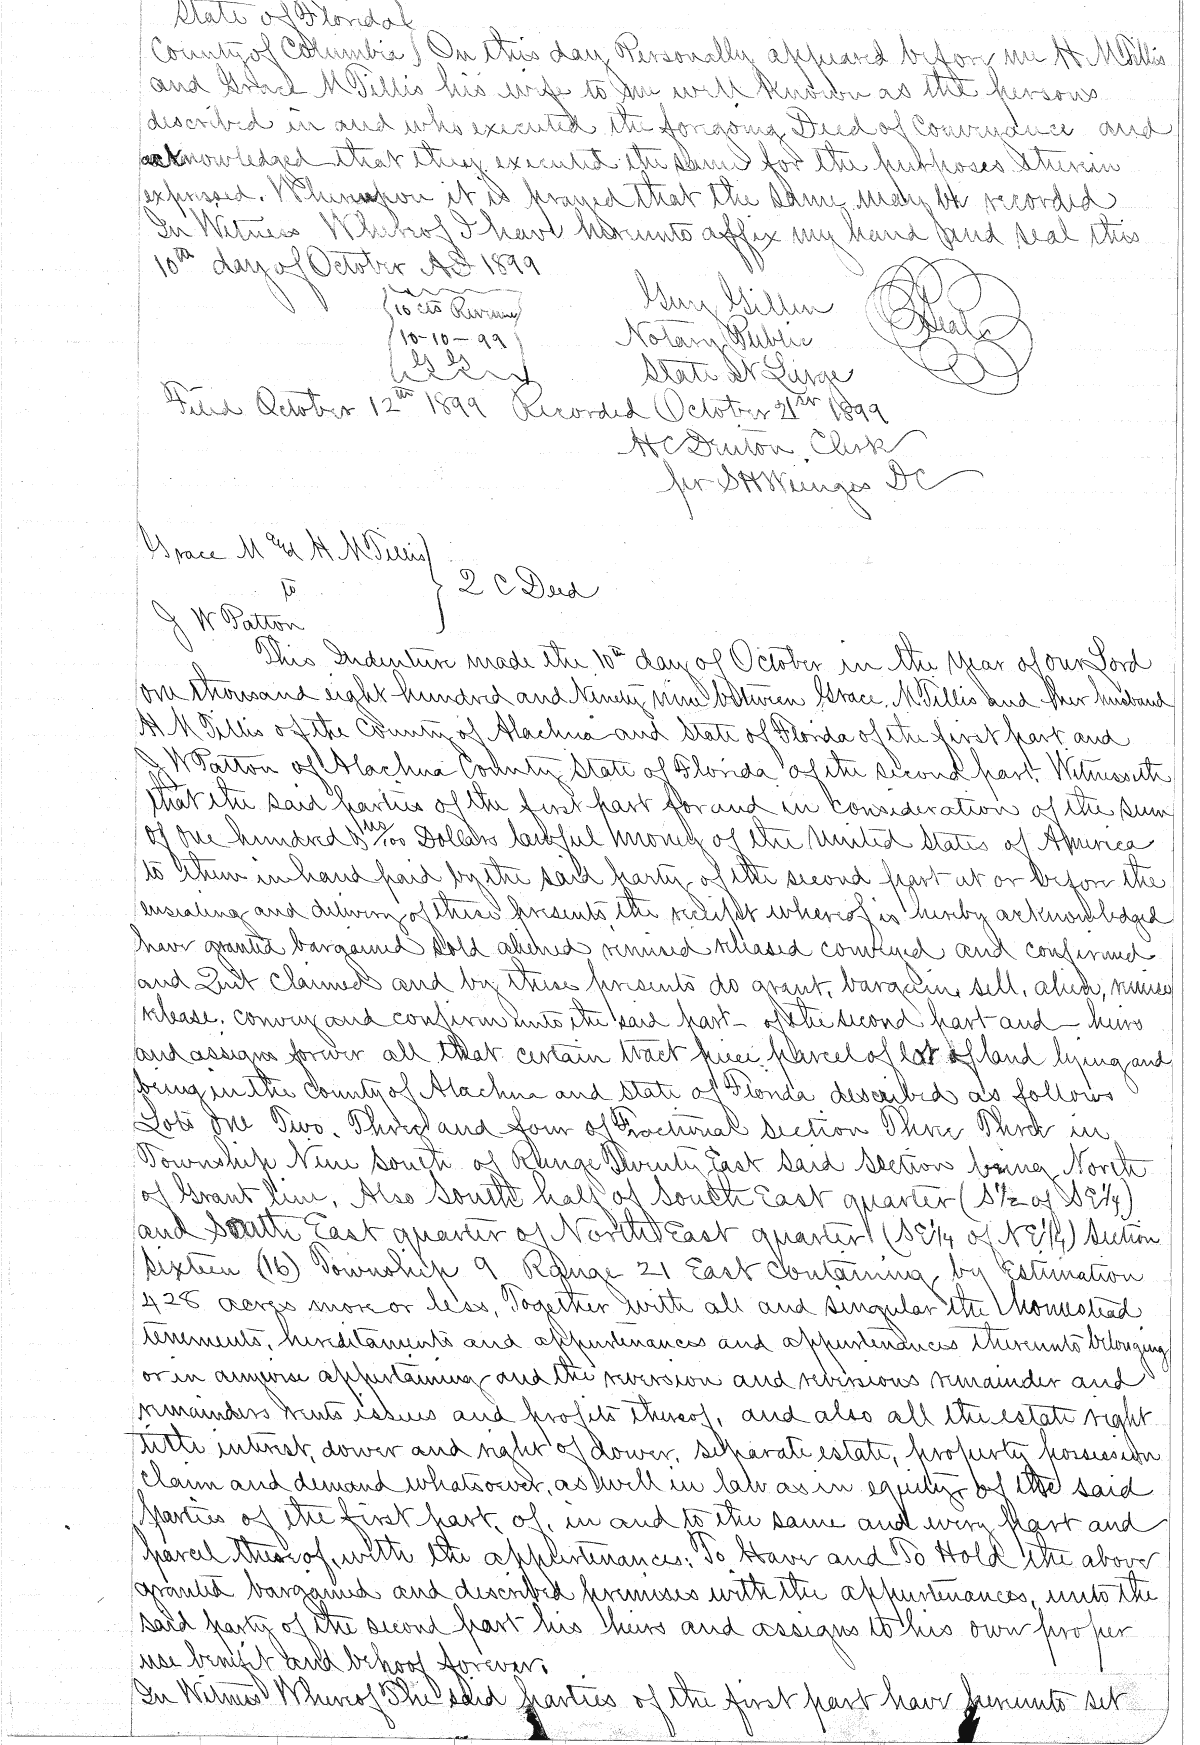 State of Florida
County of Columbia } On this day Personally appeared before me H McTillis
and Grace McTillis his wife to me well known as the persons
described in and who executed the foregoing Deed of Conveyance and
acknowledged that they executed the same for the purposes therein
expressed. Whereupon it is prayed that the same may be recorded
In Witness Whereof I have hereunto affix my hand and seal this
10th day of October AD 1899
10 cts Revenue
10-10-99
G G
Guy Gillen
Notary Public
State At Large
Seal
Filed October 12th 1899 Recorded October 21st 1899
H C Denton Clerk
per S H Wienges DC
Grace M and H McTillis
to
J W Patton
} 2 C Deed
This Indenture made the 10th day of October in the Year of our Lord
one thousand eight hundred and Ninety nine between Grace McTillis and her husband
H McTillis of the County of Alachua and State of Florida of the first part and
J W Patton of Alachua County State of Florida of the second part. Witnesseth
that the said parties of the first part for and in consideration of the sum
of one hundred & no/100 Dollars lawful money of the United States of America
to them in hand paid by the said party of the second part at or before the
ensealing and delivery of these presents the receipt whereof is hereby acknowledged
have granted bargained sold aliened remised released conveyed and confirmed
and Quit Claimed and by these presents do grant, bargain, sell, alien, remise
release, convey and confirm unto the said part- of the second part and - heirs
and assigns forever all that certain tract piece parcel of lot of land lying and
being in the County of Alachua and State of Florida described as follows
Lots One Two, Three and four of Fractional Section Three Three in
Township Nine South of Range Twenty East said Section being North
of Grant line, Also South half of South East quarter (S 1/2 of SE 1/4)
and South East quarter of North East quarter (SE 1/4 of NE 1/4) Section
Sixteen (16) Township 9 Range 21 East Containing by Estimation
428 acres more or less, Together with all and singular the Homestead
tenements, hereditaments and appurtenances and appurtenances thereunto belonging
or in anywise appertaining and the reversion and reversions remainder and
remainders rents issues and profits thereof, and also all the estate right
title interest, dower and right of dower, separate estate, property possession
claim and demand whatsoever, as well in law as in equity of the said
parties of the first part, of, in and to the same and every part and
parcel thereof, with the appurtenances; To Have and To Hold the above
granted bargained and described premises with the appurtenances, unto the
said party of the second part his heirs and assigns to his own proper
use benefit and behoof forever.
In Witness Whereof The said parties of the first part have hereunto set